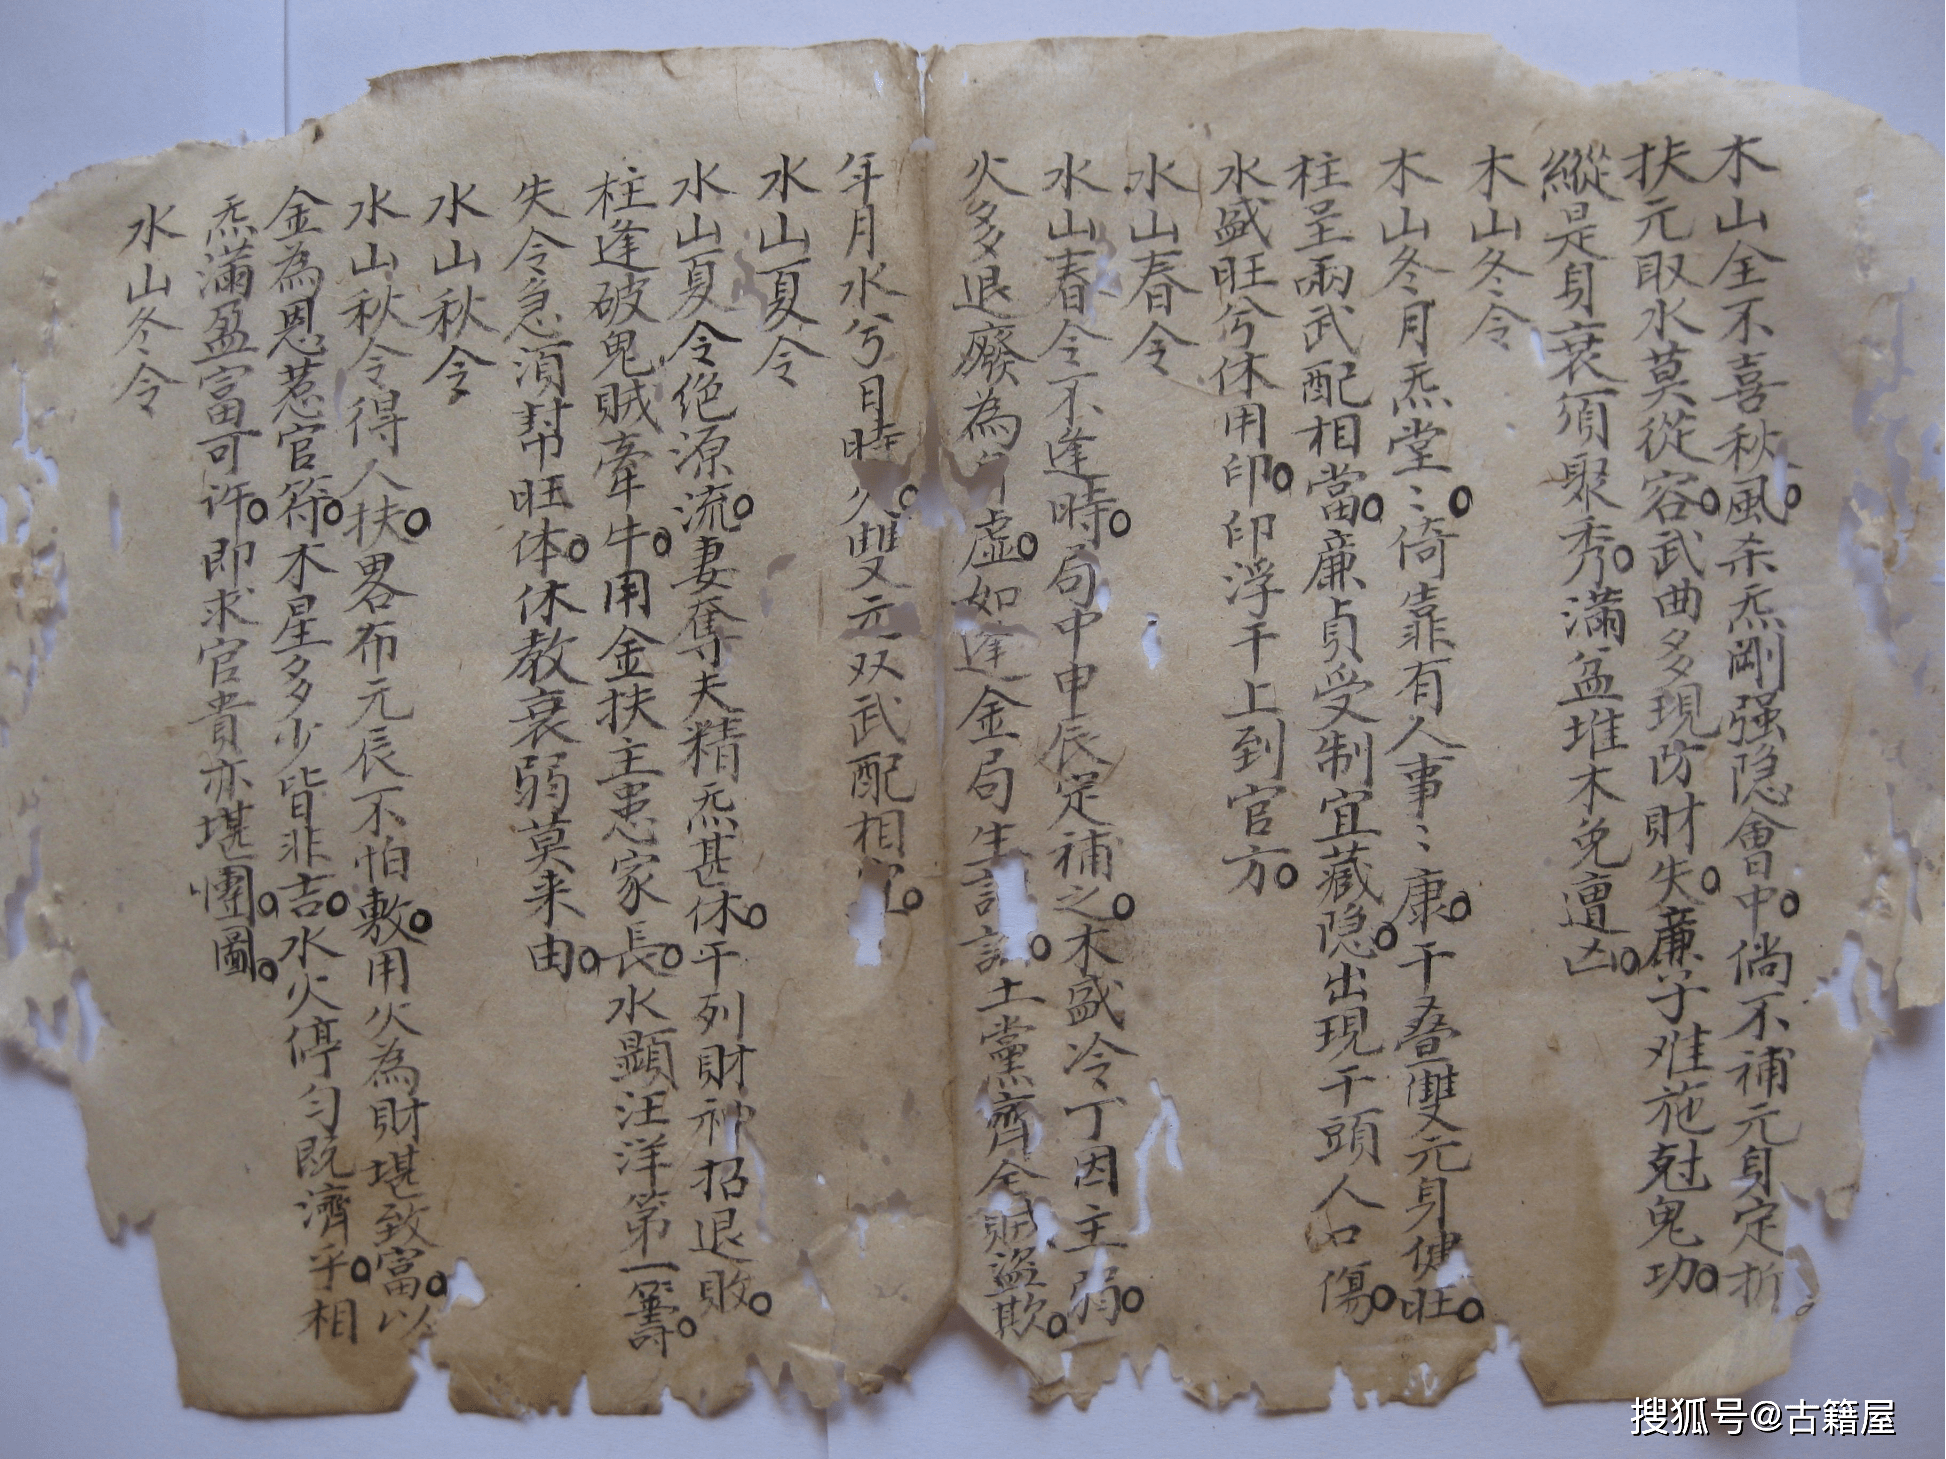 木山全不喜秋風。杀炁剛强隐會中。倘不補元身定折。
扶元取水莫從容。武曲多現防財失。廉子难施尅鬼功。
縱是身衰須聚秀。滿盆堆木免遭凶。
木山冬令
木山冬月炁堂〻。倚靠有人事〻康。干叠雙元身健旺。
柱呈兩武配相當。廉貞受制宜藏隐。出現干頭人口傷。
水盛旺兮休用印。印浮干上到官方。
水山春令
水山春令不逢時。局中申辰定補之。木盛冷丁因主弱。
火多退廢為 虛。如逢金局生 。土黨齊全賊盜欺。
年月水兮日時火雙元双武配相 。
水山夏令
水山夏令绝源流。妻奪夫精炁甚休。干列財神招退敗。
柱逢破鬼賊牽牛。用金扶主患家長。水顯汪洋第一籌。
失令急須幇旺体。休教衰弱莫来由。
水山秋令
水山秋令得人扶。畧布元辰不怕敷。用火為財堪致富。以
金為恩惹官符。木星多少皆非吉。水火停匀既濟乎。相
炁滿盈富可许。即求官貴亦堪慱圖。
水山冬令
搜狐号@古籍屋